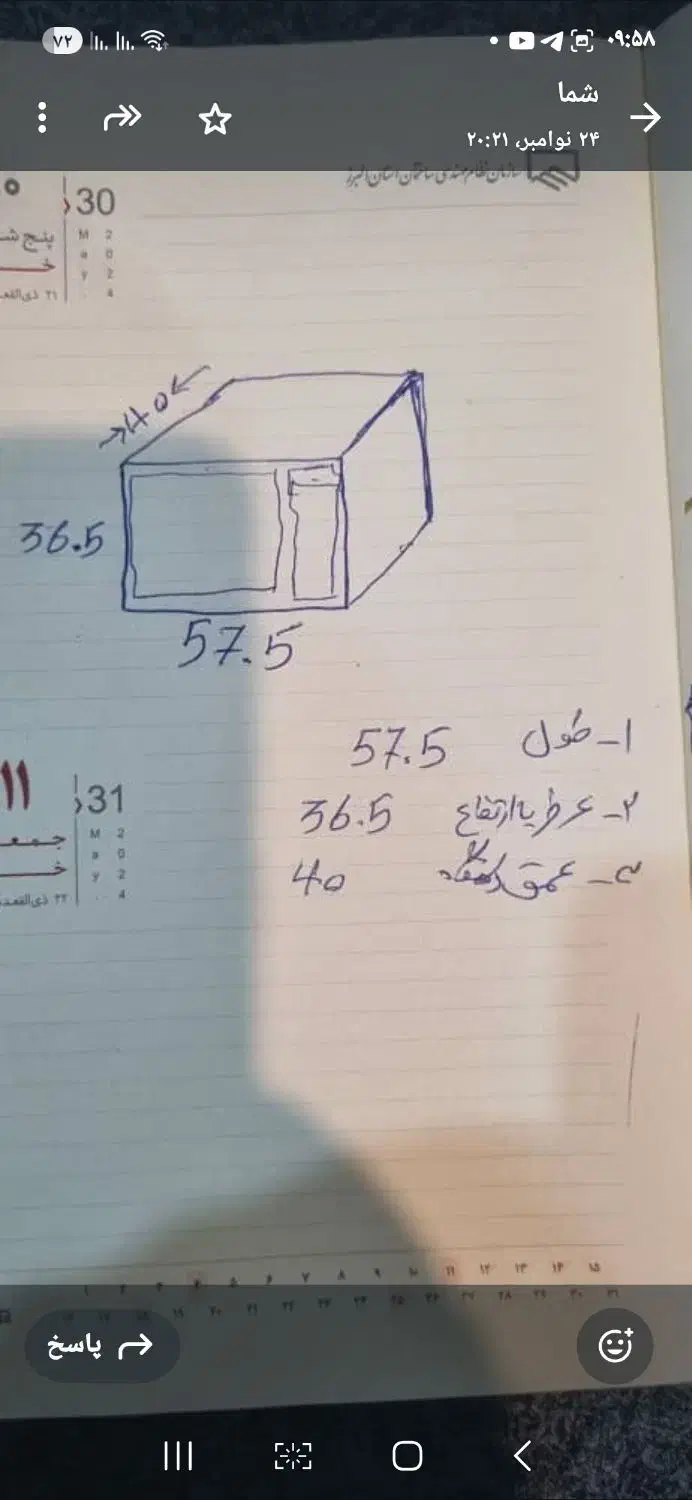 ۷۲
۰۹:۵۸
شما
۲۴ نوامبر، ۲۰:۲۱
سازمان نظام مهندسی ساختمان استان البرز
30
M a y
2 0 2 4
پنج ش
خـ
۲۱ ذی‌القعد
→40←
36.5
57.5
۱- طول 57.5
۲- عرض یا ارتفاع 36.5
۳- عمق دستگاه 40
۱۱
31
M a y
2 0 2 4
جمعـ
خـ
۲۲ ذی‌القعد
۱ ۲ ۳ ۴ ۵ ۶ ۷ ۸ ۹ ۱۰ ۱۱ ۱۲ ۱۳ ۱۴ ۱۵
۱۹ ۲۰ ۲۱ ۲۲ ۲۳ ۲۴ ۲۵ ۲۶ ۲۷ ۲۸ ۲۹ ۳۰ ۳۱
پاسخ